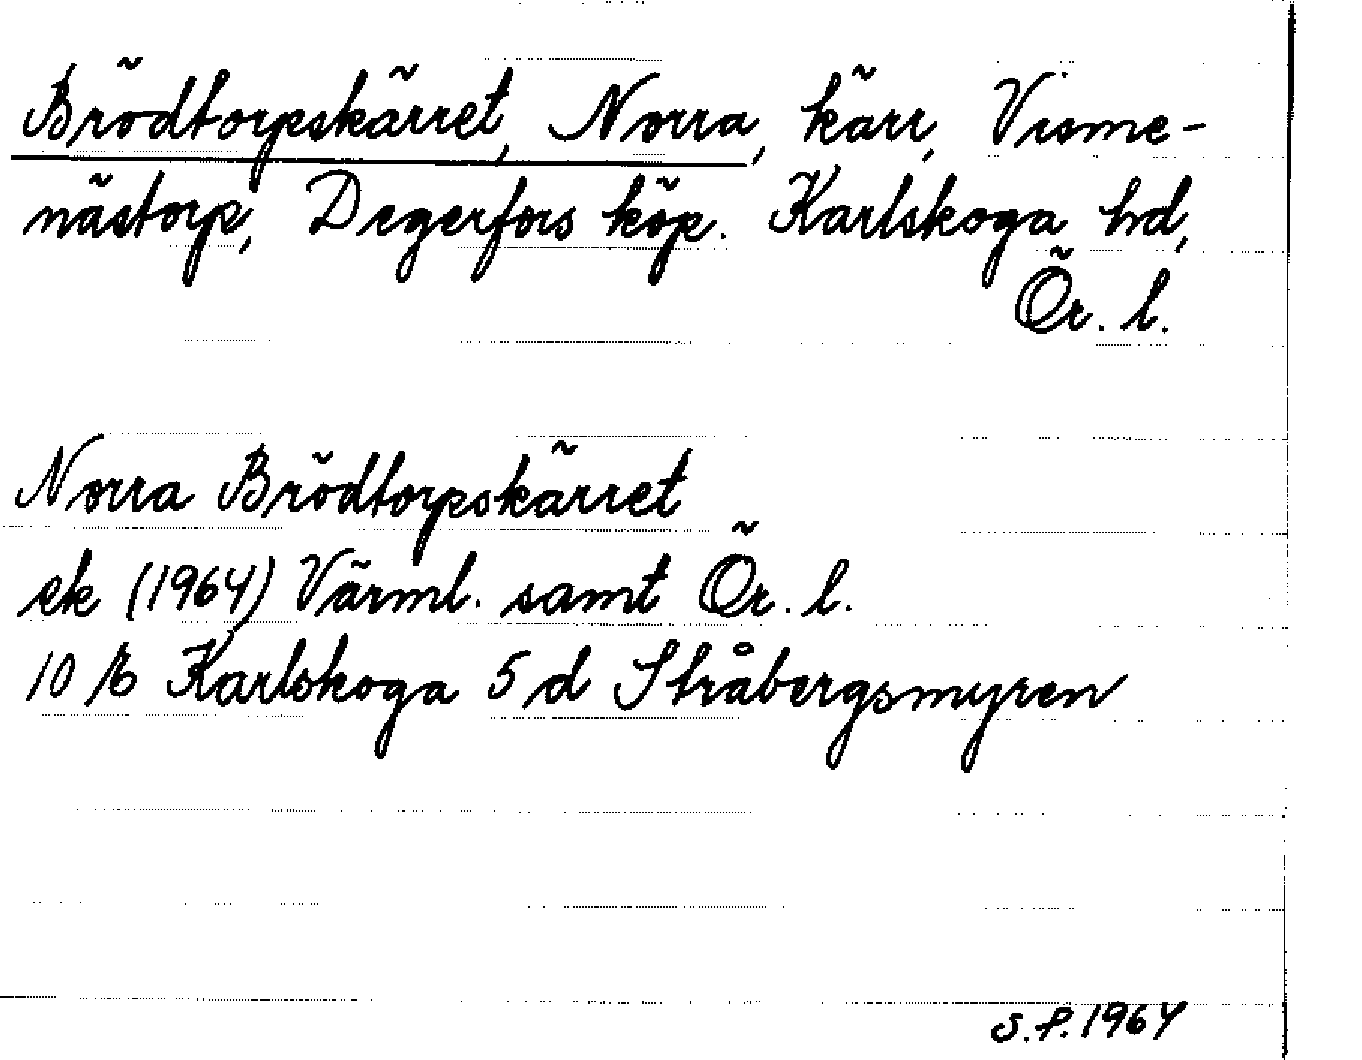 Brödtorpskärret, Norra, kärr, Visme-
nästorp, Degerfors köp. Karlskoga hd,
Ör. l.
Norra Brödtorpskärret
ek (1964) Värml. samt Ör. l.
10 E Karlskoga 5 d Stråbergsmyren
S.P. 1964